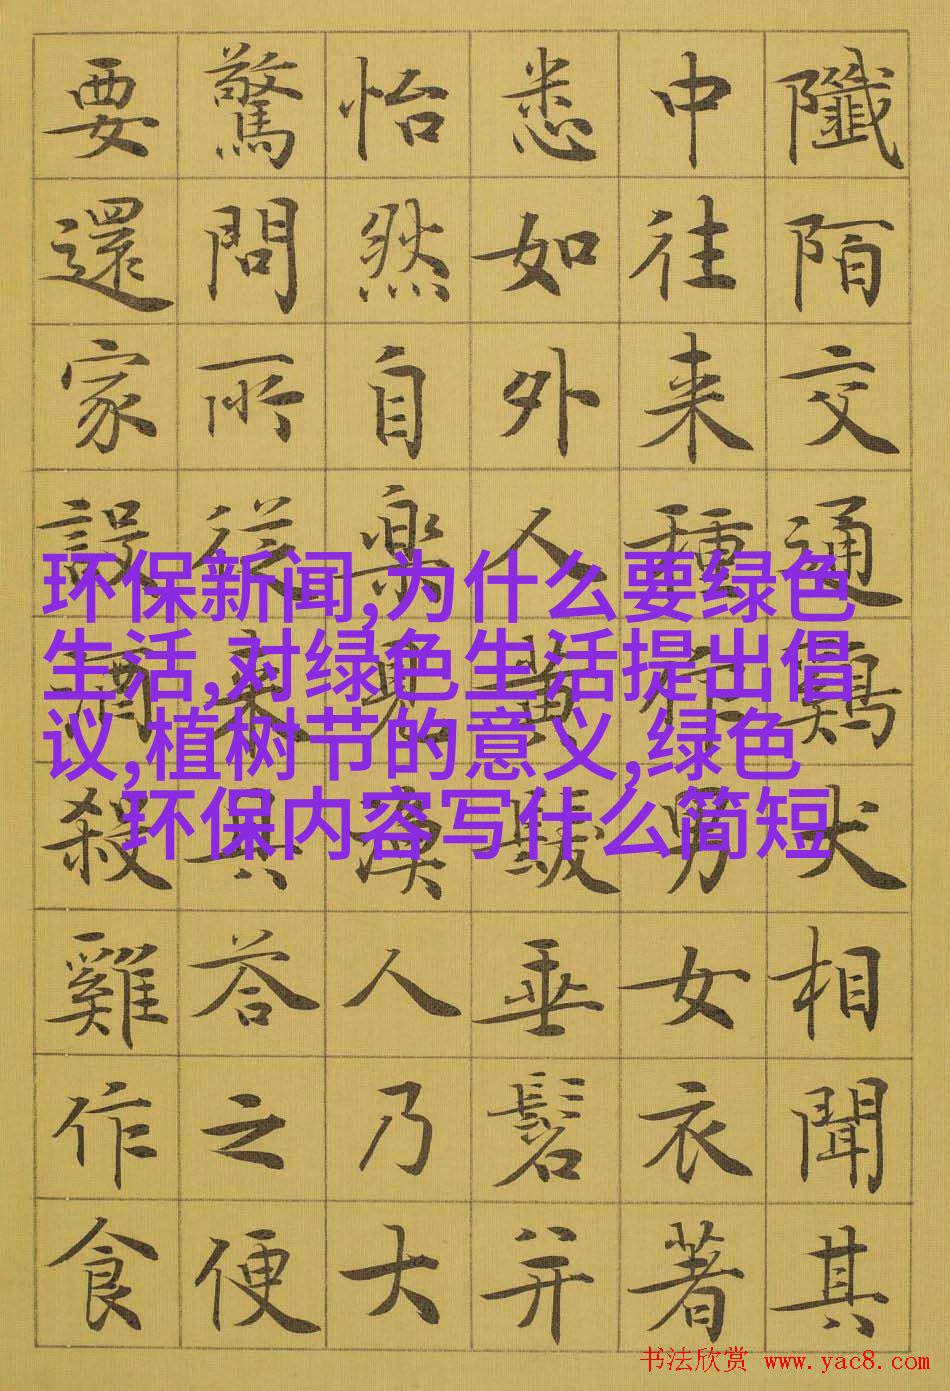 陌交通鷄犬相聞其
中往来種作男女衣著
悉如外人黄髮垂髫并
怡然自樂見漁人乃大
驚問所從来具答之便
要還家設酒殺雞作食
环保新闻,为什么要绿色
生活,对绿色生活提出倡
议,植树节的意义,绿色
环保内容写什么简短
书法欣赏 www.yac8.com